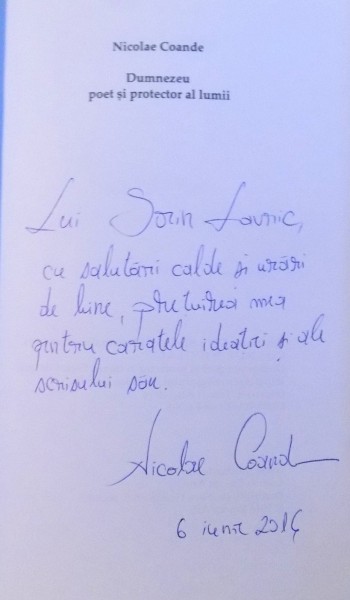 Nicolae Coande
Dumnezeu
poet și protector al lumii
Lui Sorin Lavric,
cu salutări calde și urări
de bine, prețuirea mea
pentru caratele ideatii și ale
scrisului său.
Nicolae Coande
6 iunie 2016